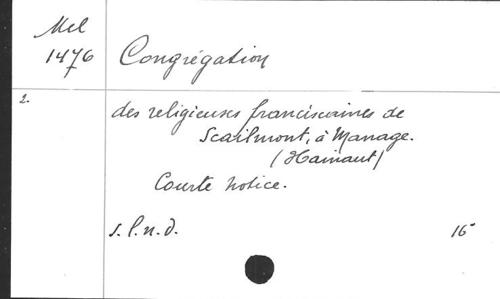 Mel
1476
Congrégation
2.
des religieuses franciscaines de
Scailmont, à Manage.
(Hainaut)
Courte notice.
s.l.n.d.
16°